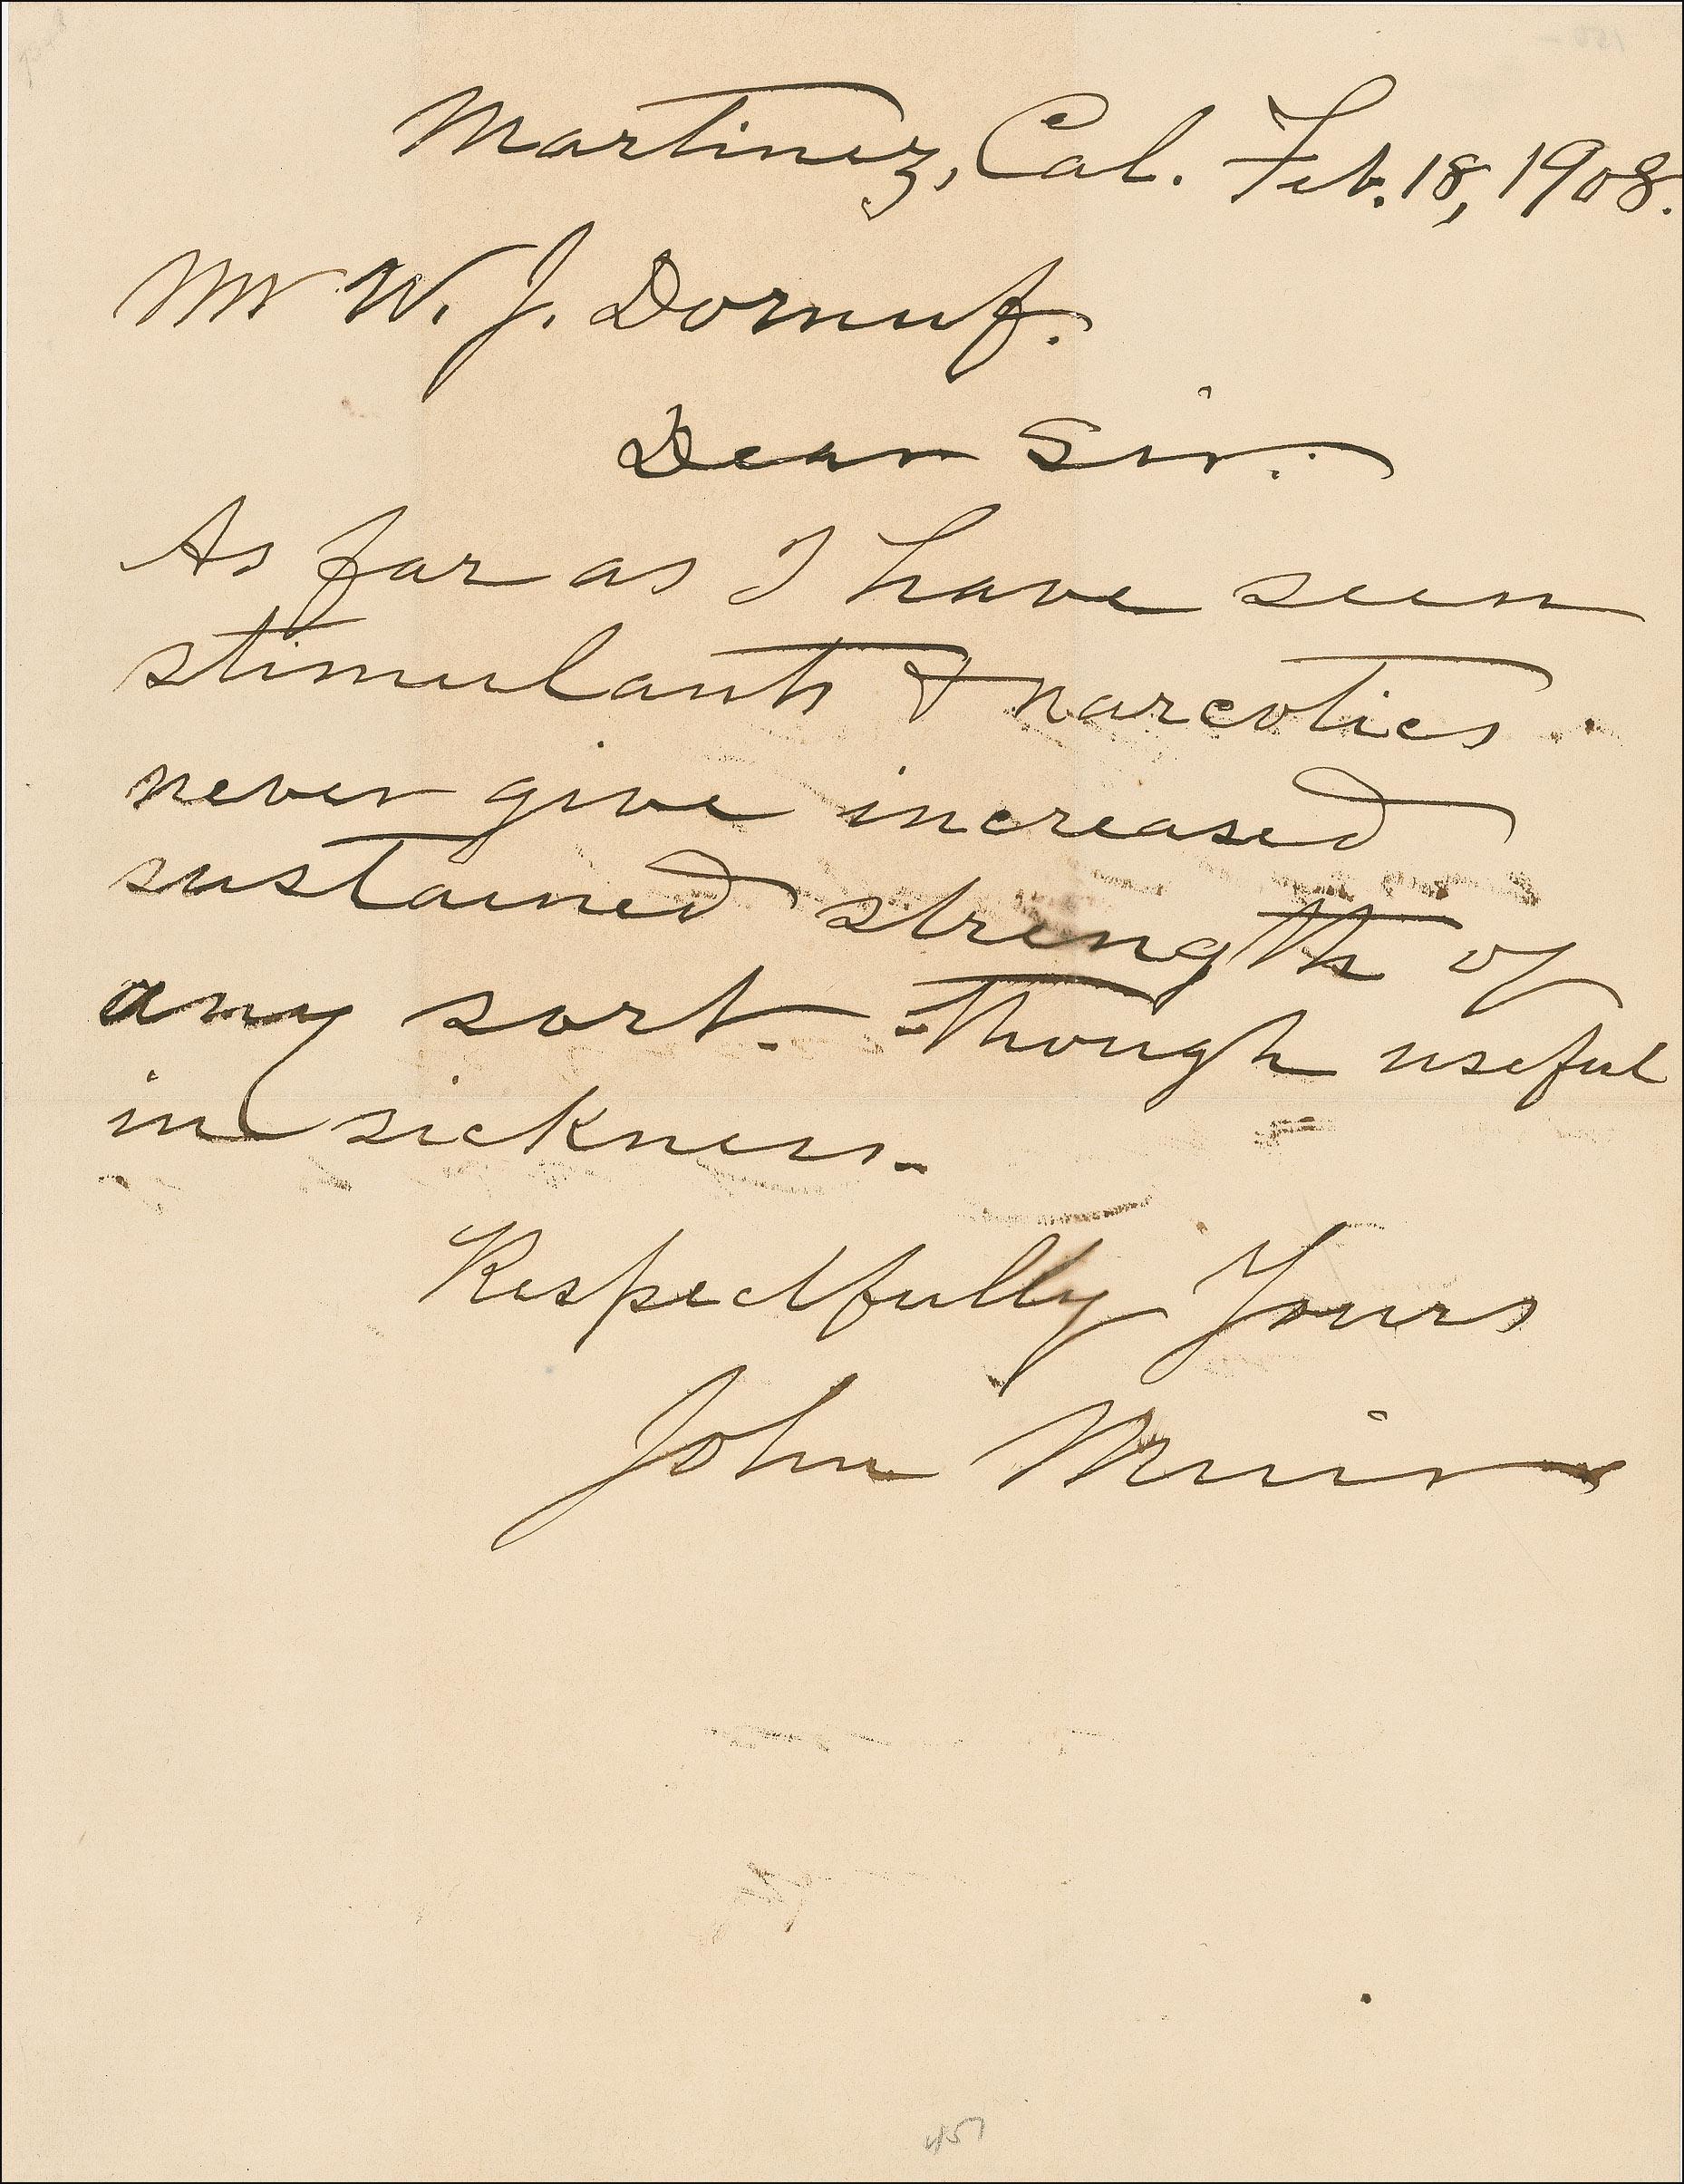 Martinez, Cal. Feb. 18, 1908.
Mr W. J. Dornuf.
Dear Sir:
As far as I have seen
stimulants & narcotics
never give increased
sustained strength of
any sort. Though useful
in sickness.
Respectfully Yours
John Muir